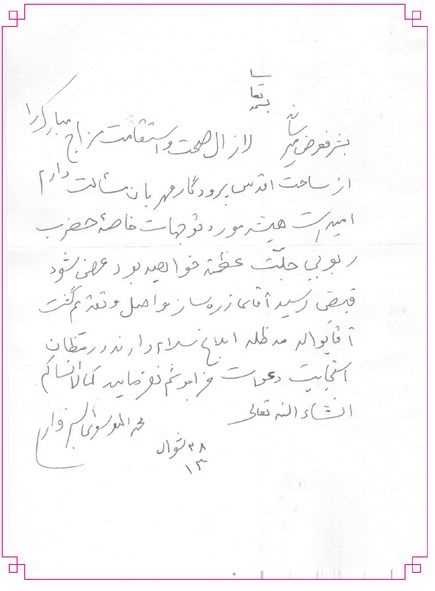 باسمه تعالی
بشرف عرض میرساند لازال صحت و استقامت مزاج مبارک را
از ساحت اقدس پروردگار مهربان مسألت دارم
امید است همیشه مورد توجهات خاصهٔ حضرت
ربوبی جلّت عظمته خواهید بود عرض میشود
قبضی رسید آقای زره ساز واصل و تقدیم گشت
آقای والد مدظله ابلاغ سلام دارند در مظان
استجابت دعوات فراموشم نفرمایید کما لا انساکم
انشاء الله تعالی
محمد الموسوی السبزواری
۲۸ شوال
۱۳